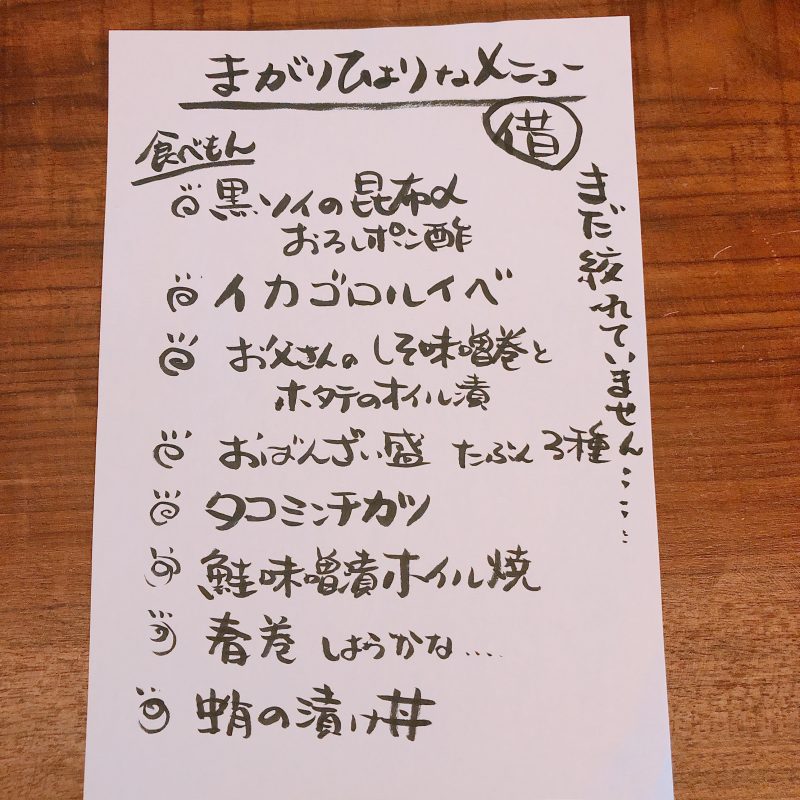 まがりびよりなメニュー
借
まだ絞れていません・・・・・
食べもん
黒ソイの昆布〆
おろしポン酢
イカゴロルイベ
お父さんのしそ味噌巻と
ホタテのオイル漬
おばんざい盛 たぶん3種
タコミンチカツ
鮭味噌漬ホイル焼
春巻 しようかな....
蛸の漬け丼